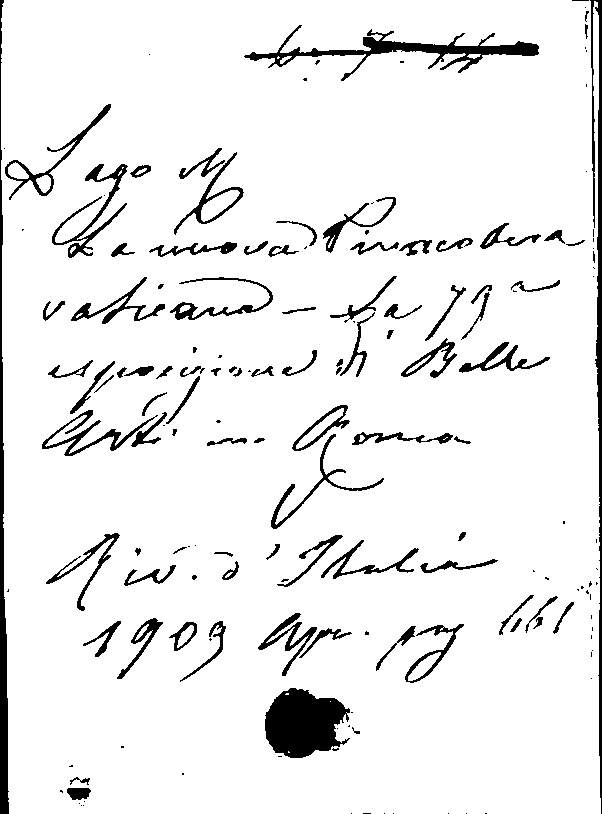 6. 7. 14
Lago M
La nuova Pinacoteca
vaticana – La 79ª
esposizione di Belle
Arti in Roma
Riv. d'Italia
1909 Apr. pag 661